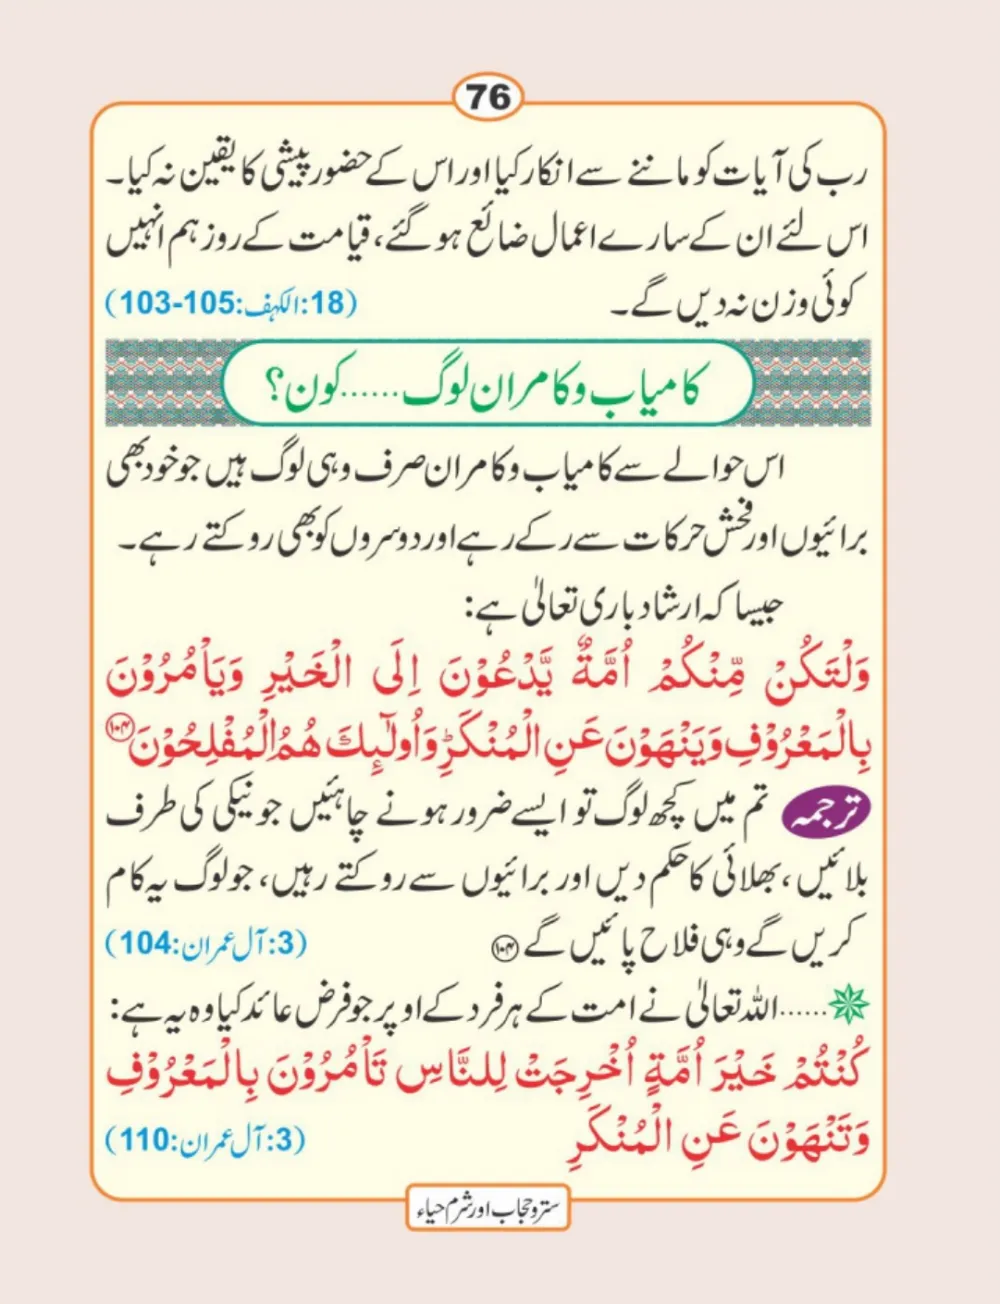 76
رب کی آیات کو ماننے سے انکار کیا اور اس کے حضور پیشی کا یقین نہ کیا۔
اس لئے ان کے سارے اعمال ضائع ہو گئے، قیامت کے روز ہم انہیں
کوئی وزن نہ دیں گے۔ (18:الکہف:103-105)
کامیاب وکامران لوگ......کون؟
اس حوالے سے کامیاب وکامران صرف وہی لوگ ہیں جو خود بھی
برائیوں اور فحش حرکات سے رکے رہے اور دوسروں کو بھی روکتے رہے۔
جیسا کہ ارشاد باری تعالیٰ ہے:
وَلْتَكُنْ مِّنْكُمْ اُمَّةٌ يَّدْعُوْنَ اِلَى الْخَيْرِ وَيَاْمُرُوْنَ
بِالْمَعْرُوْفِ وَيَنْهَوْنَ عَنِ الْمُنْكَرِ ؕ وَاُولٰٓئِكَ هُمُ الْمُفْلِحُوْنَ ۝۱۰۴
ترجمہ تم میں کچھ لوگ تو ایسے ضرور ہونے چاہئیں جو نیکی کی طرف
بلائیں، بھلائی کا حکم دیں اور برائیوں سے روکتے رہیں، جو لوگ یہ کام
کریں گے وہی فلاح پائیں گے ۝۱۰۴ (3:آل عمران:104)
......اللہ تعالیٰ نے امت کے ہر فرد کے اوپر جو فرض عائد کیا وہ یہ ہے:
كُنْتُمْ خَيْرَ اُمَّةٍ اُخْرِجَتْ لِلنَّاسِ تَاْمُرُوْنَ بِالْمَعْرُوْفِ
وَتَنْهَوْنَ عَنِ الْمُنْكَرِ (3:آل عمران:110)
ستر وحجاب اور شرم حیاء